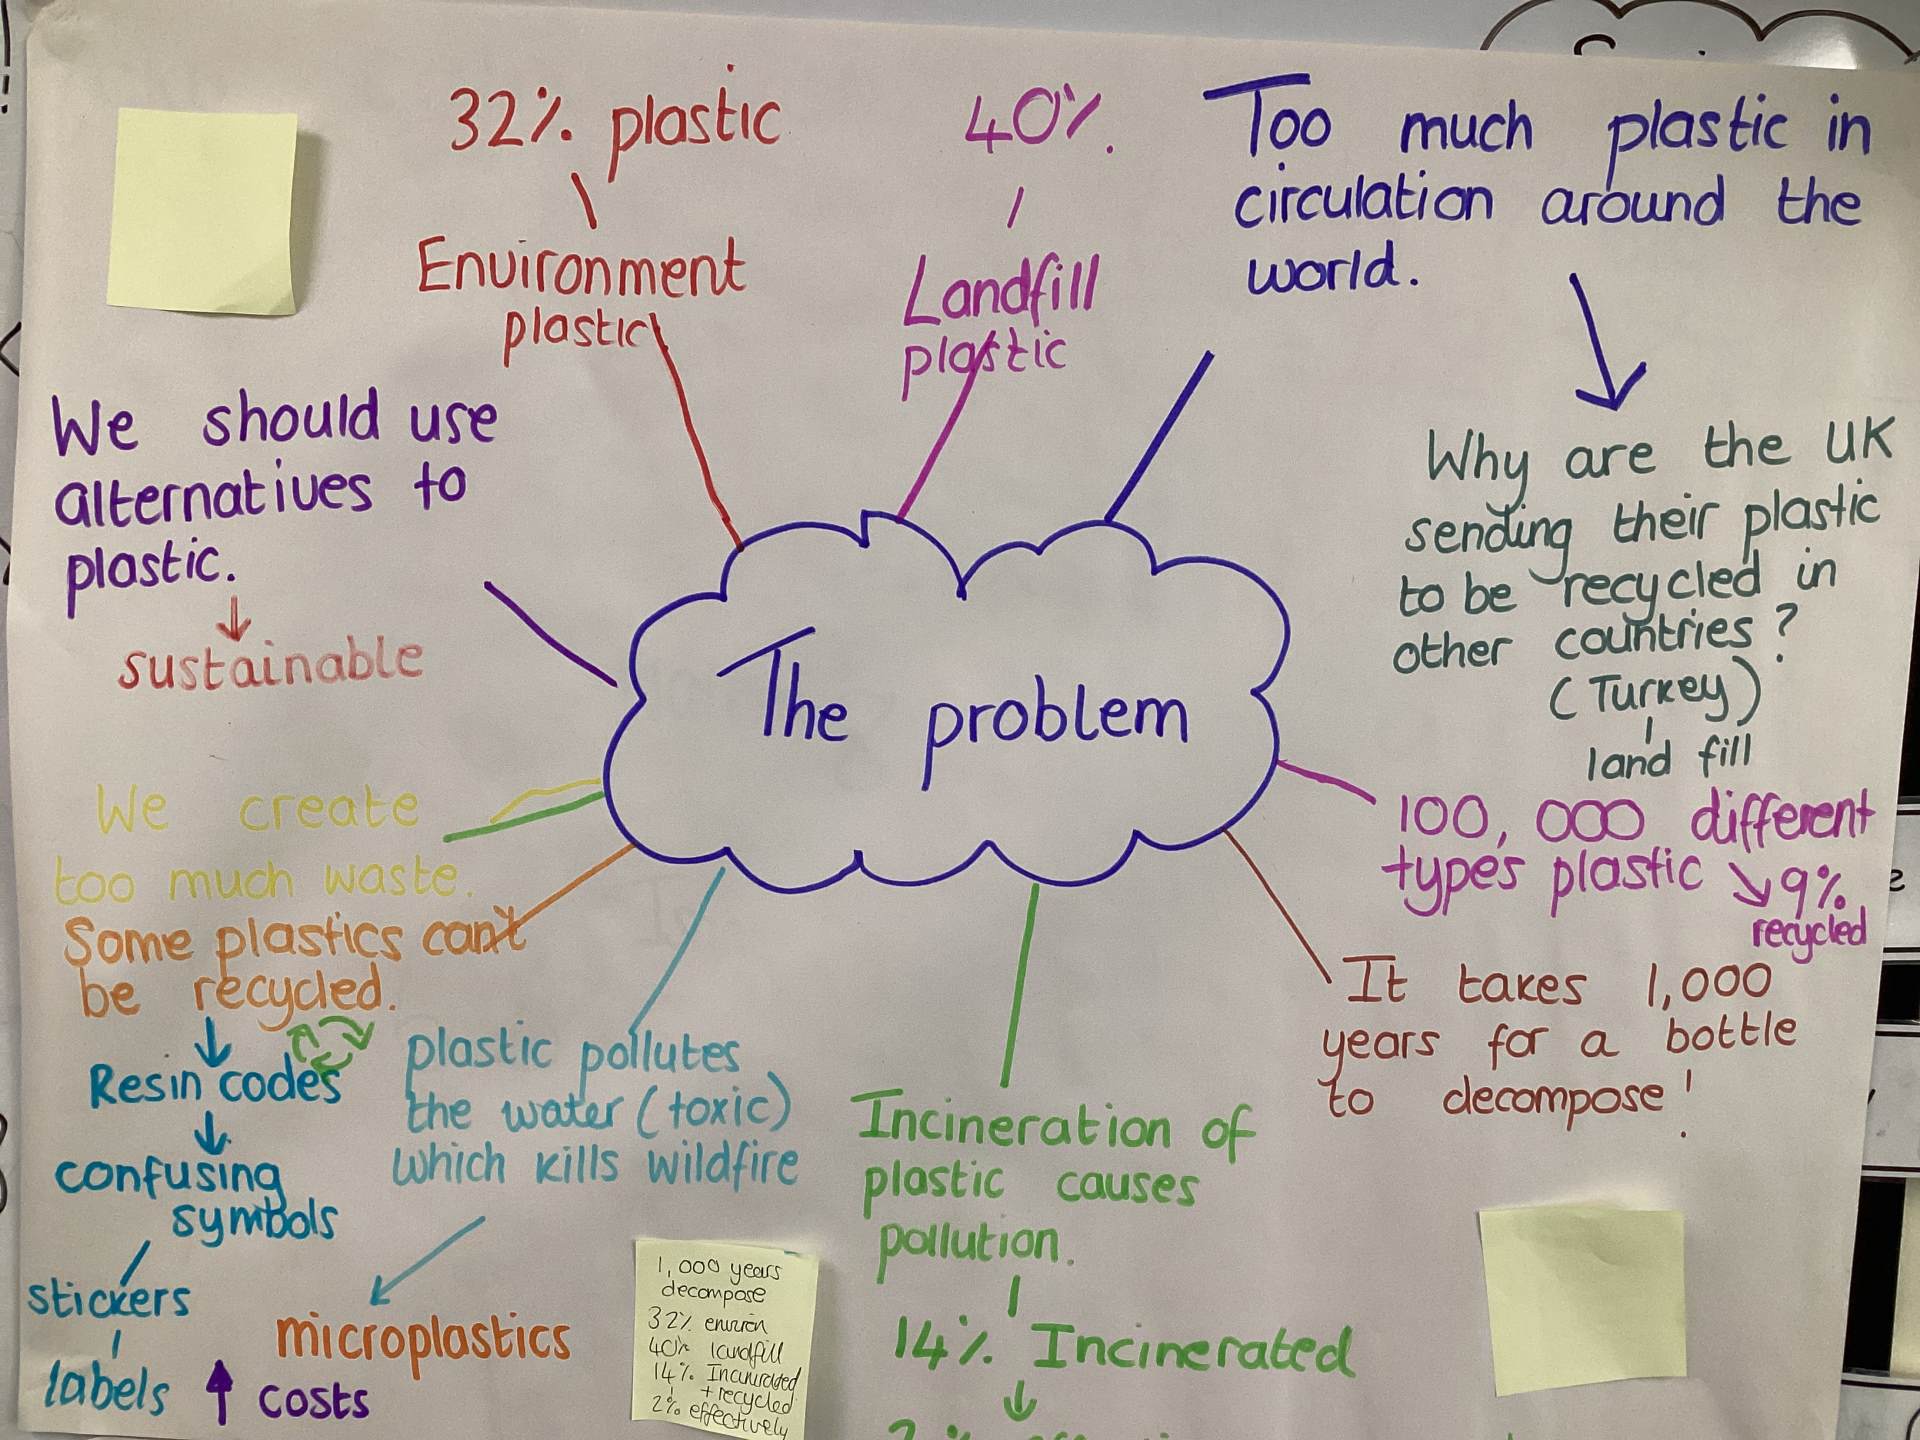 32% plastic
Environment
plastic
40%.
Landfill
plastic
Too much plastic in
circulation around the
world.
Why are the UK
sending their plastic
to be recycled in
other countries?
(Turkey)
land fill
We should use
alternatives to
plastic.
sustainable
The problem
100,000 different
types plastic 9%
recycled
It takes 1,000
years for a bottle
to decompose!
We create
too much waste.
Some plastics can't
be recycled.
Resin codes
confusing
symbols
stickers
labels
costs
plastic pollutes
the water (toxic)
which kills wildfire
microplastics
1,000 years
decompose
32% environ
40% landfill
14% Incinerated
+ recycled
2% effectively
Incineration of
plastic causes
pollution.
14% Incinerated